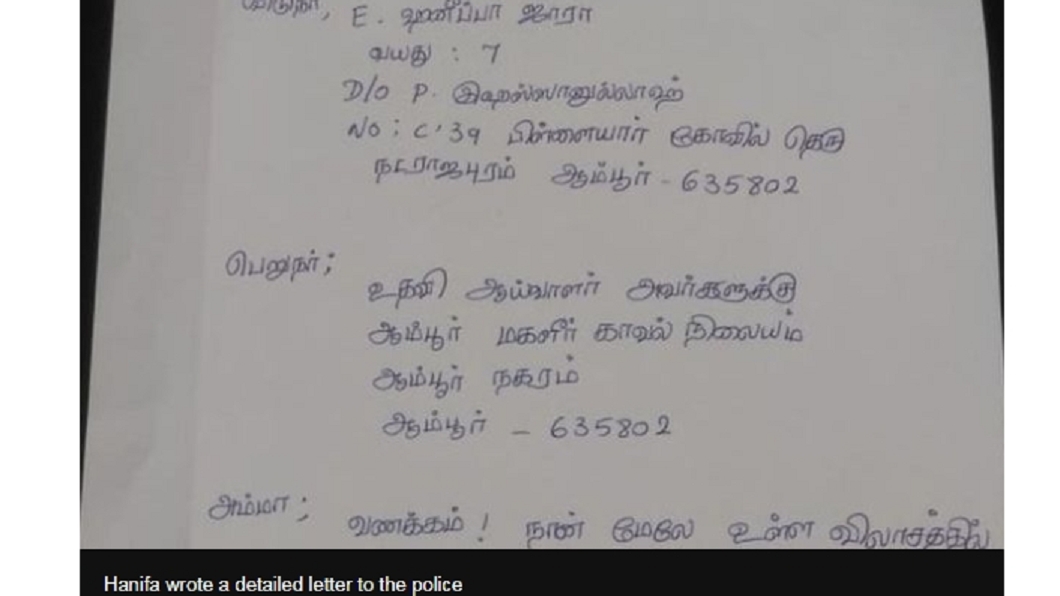 E. ஹனீப்பா ஜாரா
வயது : 7
D/O P. இஹஸ்ஸானுல்லாஹ்
NO : C'39 பிள்ளையார் கோவில் தெரு
நடராஜபுரம் ஆம்பூர் - 635802
பெறுநர் ;
உதவி ஆய்வாளர் அவர்களுக்கு
ஆம்பூர் மகளிர் காவல் நிலையம்
ஆம்பூர் நகரம்
ஆம்பூர் - 635802
அம்மா ;
வணக்கம் ! நான் மேலே உள்ள விலாசத்தில்
Hanifa wrote a detailed letter to the police